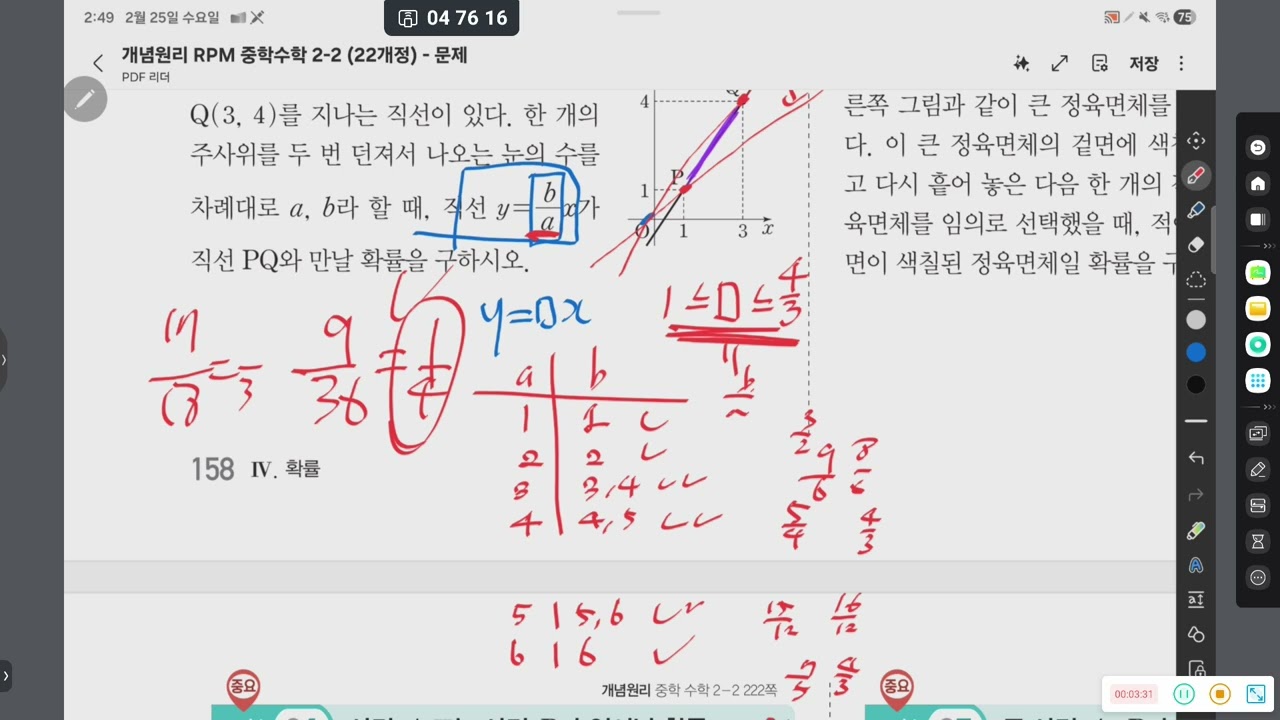 2:49 2월 25일 수요일
04 76 16
75
개념원리 RPM 중학수학 2-2 (22개정) - 문제
PDF 리더
저장
Q(3, 4)를 지나는 직선이 있다. 한 개의
주사위를 두 번 던져서 나오는 눈의 수를
차례대로 a, b라 할 때, 직선 y=b/a x가
직선 PQ와 만날 확률을 구하시오.
4
Q
P
1
O 1 3 x
른쪽 그림과 같이 큰 정육면체를
다. 이 큰 정육면체의 겉면에 색
고 다시 흩어 놓은 다음 한 개의
육면체를 임의로 선택했을 때, 적
면이 색칠된 정육면체일 확률을 구
y=□x
1 ≤ □ ≤ 4/3
9/36 = 1/4
a b
1 1
2 2
3 3,4
4 4,5
5 5,6
6 6
3/2
9/6 8/6
5/4 4/3
15/12 16/12
7/5 4/3
158 IV. 확률
개념원리 중학 수학 2-2 222쪽
중요
중요
00:03:31